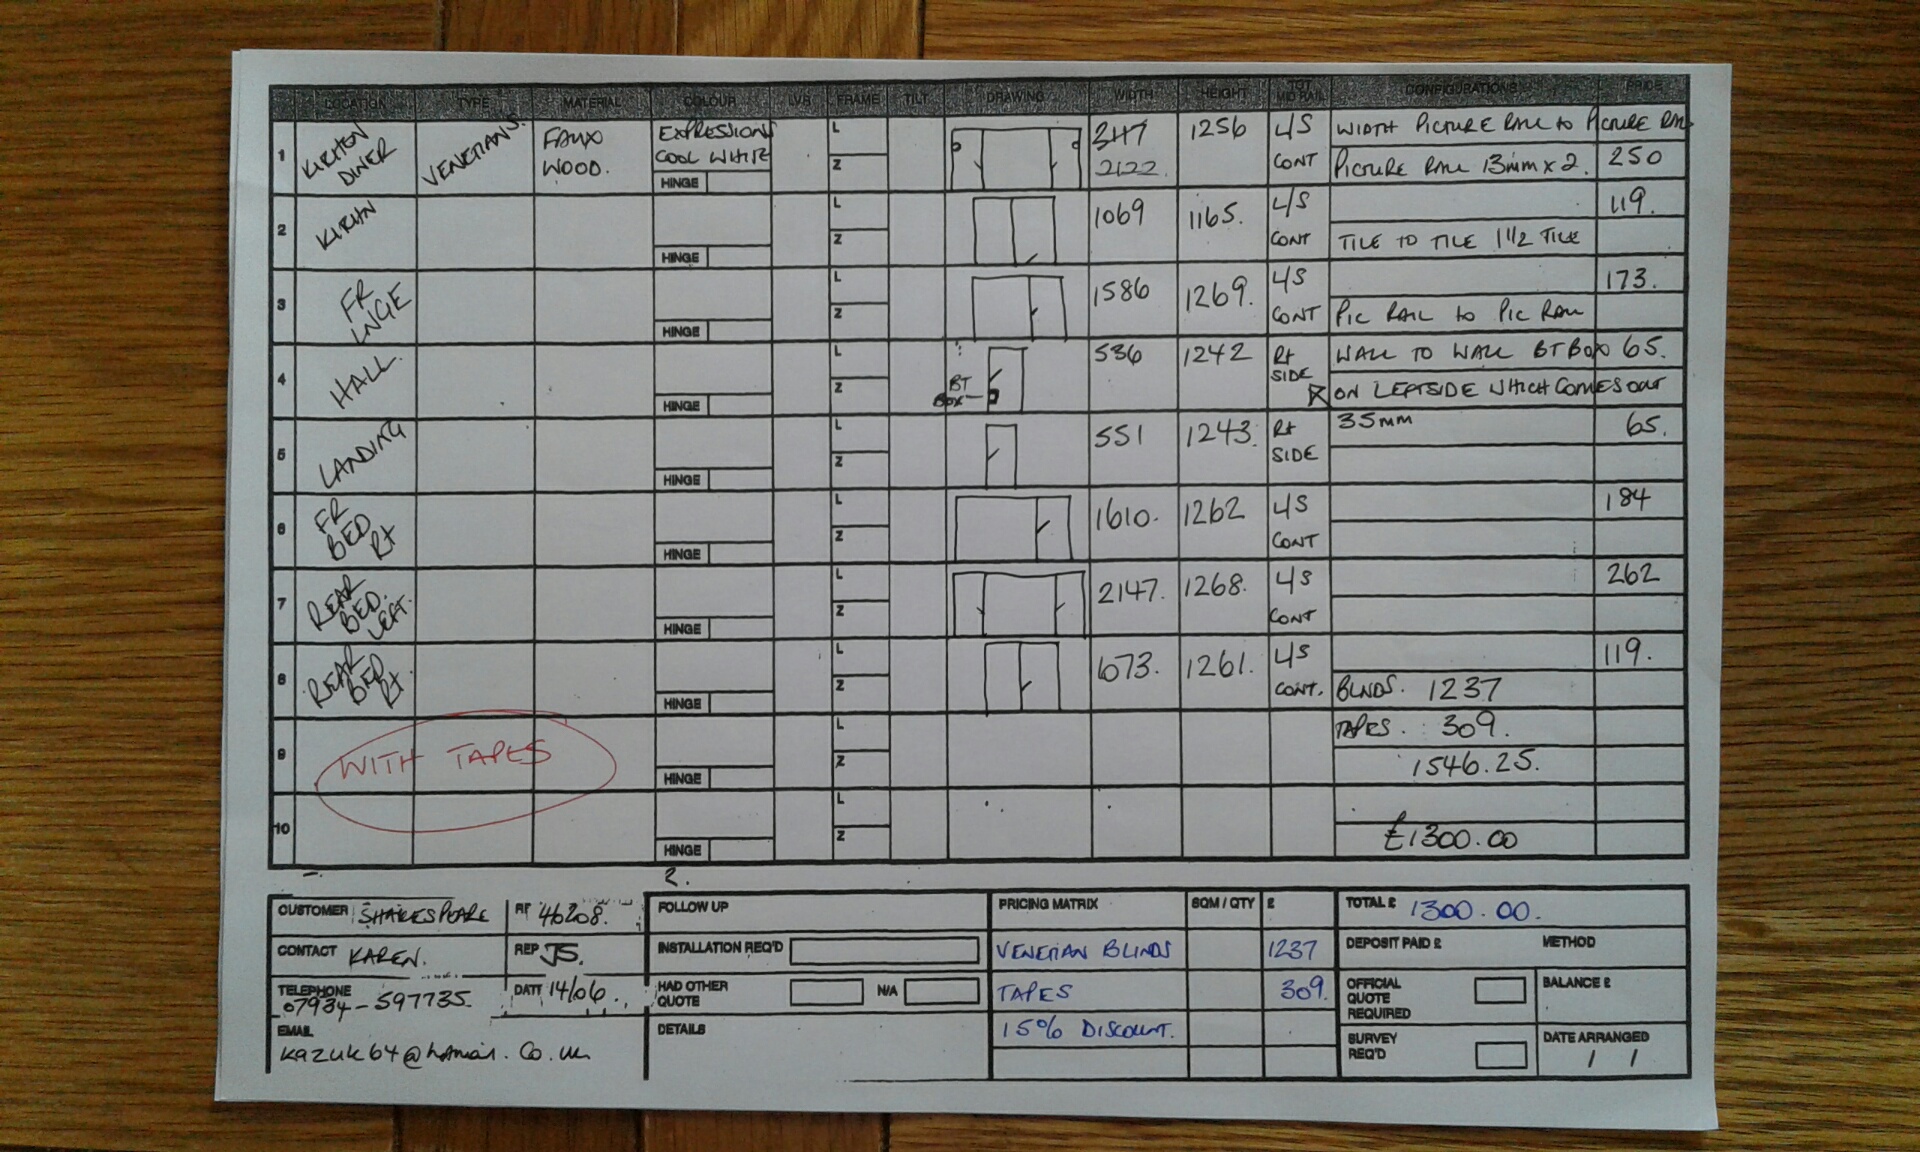 LOCATION TYPE MATERIAL COLOUR LVS FRAME TILT DRAWING WIDTH HEIGHT MID RAIL CONFIGURATIONS PRICE
1 KITCHEN DINER VENETIANS. FAUX WOOD. EXPRESSIONS COOL WHITE HINGE L Z 2122. 1256 L/S CONT WIDTH PICTURE RAIL TO PICTURE RAIL
PICTURE RAIL 13mm x 2. 250
2 KITCHN HINGE L Z 1069 1165. L/S CONT 119.
TILE TO TILE 1 1/2 TILE
3 FR LNGE HINGE L Z 1586 1269. L/S CONT 173.
PIC RAIL TO PIC RAIL
4 HALL. HINGE L Z BT BOX 536 1242 Rt SIDE WALL TO WALL BT BOX 65.
ON LEFTSIDE WHICH COMES OUT
5 LANDING HINGE L Z 551 1243. Rt SIDE 35mm 65.
6 FR BED Rt HINGE L Z 1610. 1262 L/S CONT 184
7 REAR BED. LEFT. HINGE L Z 2147. 1268. L/S CONT 262
8 REAR BED Rt. HINGE L Z 1261. L/S CONT. 119.
BLNDS. 1237
9 WITH TAPES HINGE L Z TAPES. 309.
1546.25.
10 HINGE L Z
£1300.00
2.
CUSTOMER SHAKESPEARE 46208. FOLLOW UP PRICING MATRIX SQM / QTY £ TOTAL £ 1300.00.
CONTACT KAREN. REP JS. INSTALLATION REQ'D VENETIAN BLINDS 1237 DEPOSIT PAID £ METHOD
TELEPHONE 07934-597735. 14/06. HAD OTHER QUOTE N/A TAPES 309. OFFICIAL QUOTE REQUIRED BALANCE £
EMAIL DETAILS 15% DISCOUNT. SURVEY REQ'D DATE ARRANGED / /